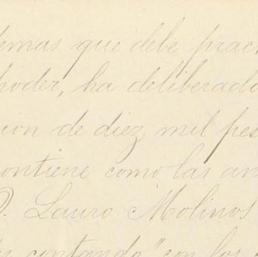 demas que debe prac
poder, ha deliberado
cion de diez mil pes
contiene como las an
D. Lauro Molinos
contando" con los